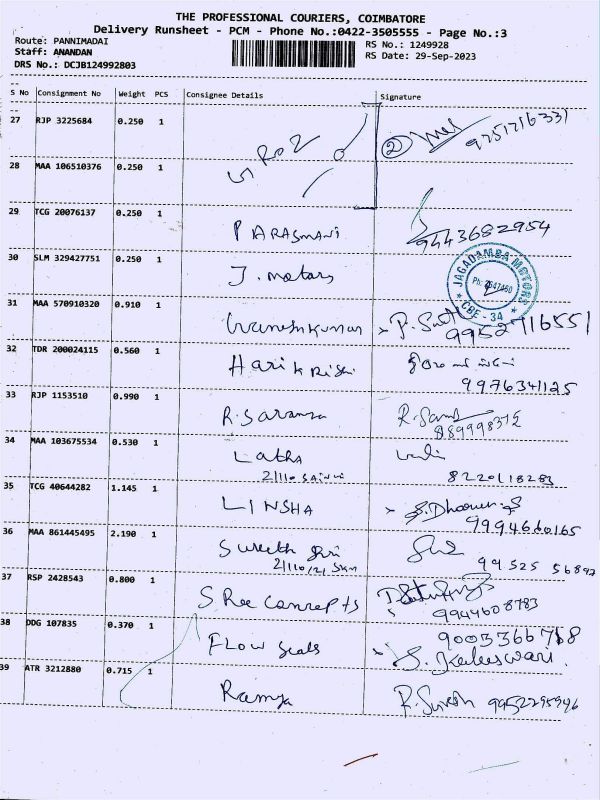 THE PROFESSIONAL COURIERS, COIMBATORE
Delivery Runsheet - PCM - Phone No.:0422-3505555 - Page No.:3
Route: PANNIMADAI
RS No.: 1249928
Staff: ANANDAN
RS Date: 29-Sep-2023
DRS No.: DCJB124992803
S No Consignment No Weight PCS Consignee Details Signature
27 RJP 3225684 0.250 1
2 9751716331
28 MAA 106510376 0.250 1
29 TCG 20076137 0.250 1 PARASMANI 9443682954
30 SLM 329427751 0.250 1 J. motors
JAGADAMBA MOTORS
CBE - 34
31 MAA 570910320 0.910 1
9952716551
32 TDR 200024115 0.560 1 Hari Krishi
9976341125
33 RJP 1153510 0.990 1 R. Saranya
34 MAA 103675534 0.530 1 Latha
2/110 8220118283
35 TCG 40644282 1.145 1 LINSHA
9994660165
36 MAA 861445495 2.190 1
99525 56897
37 RSP 2428543 0.800 1 S Ree Concepts
9944608783
38 DDG 107835 0.370 1 FLOW Seals
9003366718
S. Kaleswari.
39 ATR 3212880 0.715 1 Ramya R. Suresh 9952295946